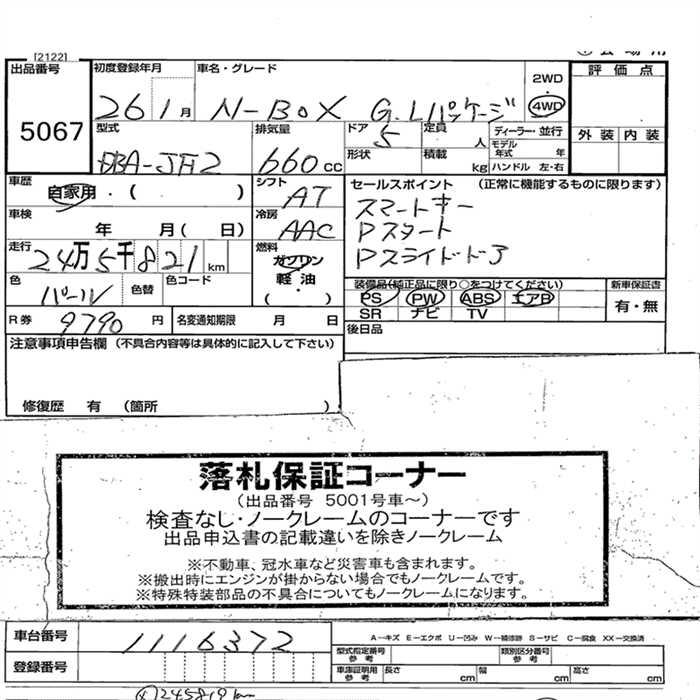 [2122]
出品番号 5067
初度登録年月 26 1月
車名・グレード N-BOX G.Lパッケージ
2WD
4WD
評価点
外装 内装
型式 DBA-JF2
排気量 660cc
ドア 5
形状
定員 人
積載 kg
ディーラー・並行
モデル年式 年
ハンドル 左・右
車歴 自家用・( )
シフト AT
セールスポイント (正常に機能するものに限ります)
スマートキー
Pスタート
Pスライドドア
車検 年 月( 日)
冷房 AAC
走行 24万5千821km
燃料 ガソリン
軽油
( ・ )
色 パール
色替
色コード
装備品(純正品に限り○をつけてください)
PS PW ABS エアB
SR ナビ TV
新車保証書
有・無
R券 9790円
名変通知期限 月 日
後日品
注意事項申告欄 (不具合内容等は具体的に記入して下さい)
修復歴 有 (箇所 )
落札保証コーナー
(出品番号 5001号車~)
検査なし・ノークレームのコーナーです
出品申込書の記載違いを除きノークレーム
※不動車、冠水車など災害車も含まれます。
※搬出時にエンジンが掛からない場合でもノークレームです。
※特殊特装部品の不具合についてもノークレームになります。
車台番号 1116372
A-キズ E-エクボ U-凹み W-補修跡 S-サビ C-腐食 XX-交換済
型式指定番号 参考
類別区分番号 参考
登録番号
車庫証明用 参考
長さ cm 幅 cm 高さ cm